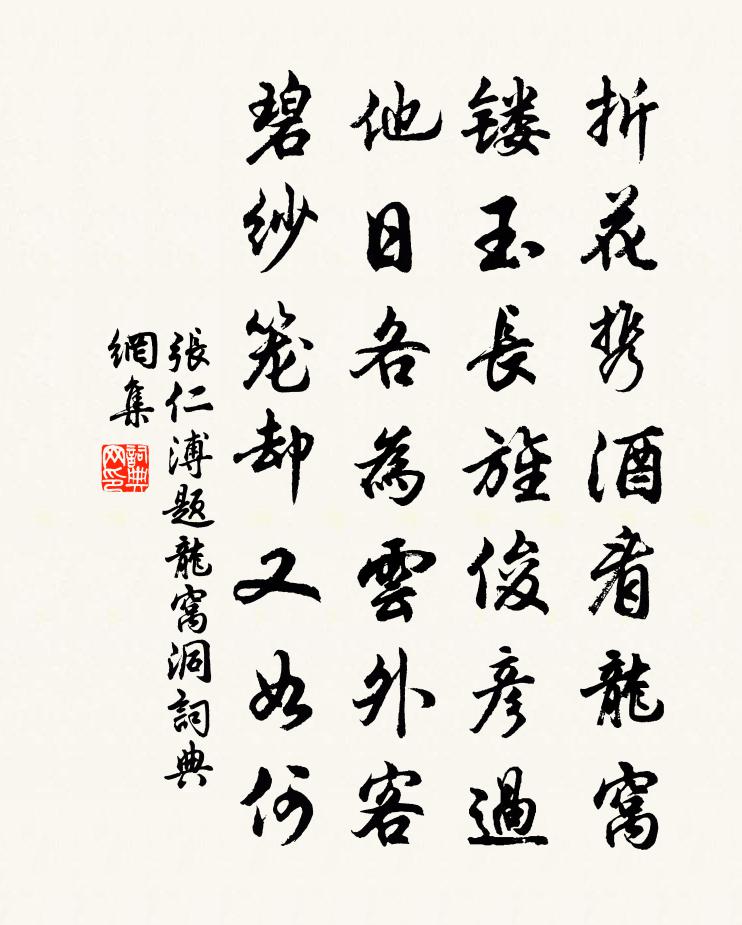 折花携酒看龍窩
镂玉長旌俊彦過
他日各為雲外客
碧纱笼却又如何
張仁溥题龍窩洞詞典
網集
詞典
网印